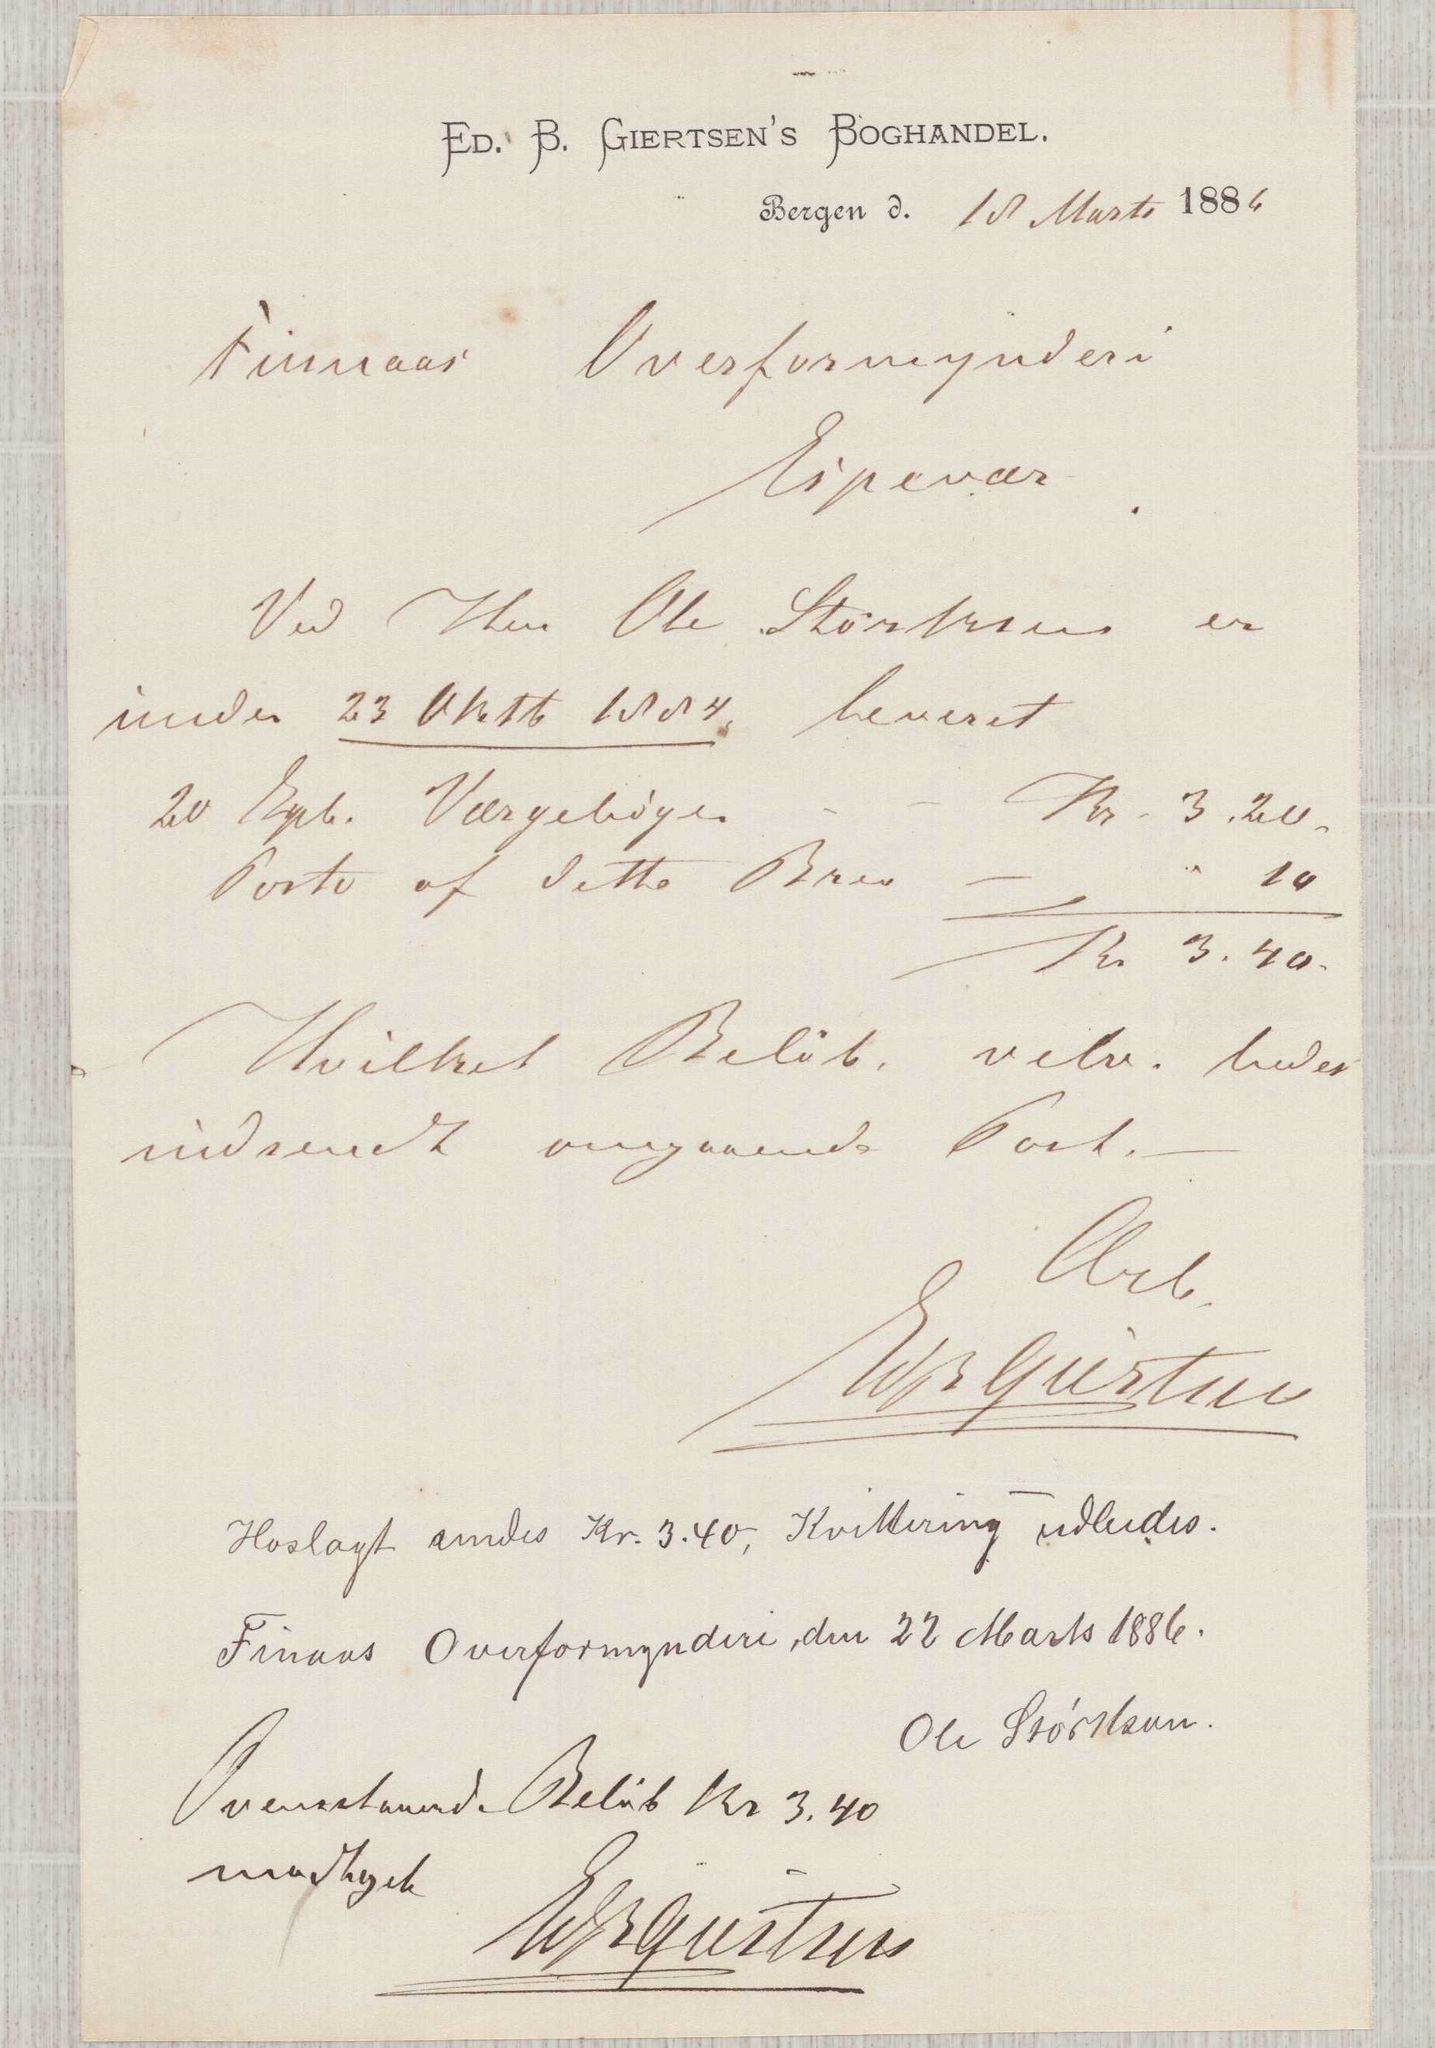 ED. B. GIERTSEN'S BOGHANDEL.
Bergen d. 18 Marts 1886
Finnaas Overformynderi
Espevær
Ved Herr Ole Størksen er
under 23 Oktb 1884, leveret
20 Expl. Værgebøger - - Kr. 3.20.
Porto af dette Brev - " 10
Kr 3.40.
Hvilket Beløb. velv. bedes
indsendt omgaaende Post. —
Ærb.
Ed B Giertsen
Hoslagt sendes Kr. 3.40, Kvittering udbedes.
Finaas Overformynderi, den 22 Marts 1886.
Ole Størkson.
Ovenstaaende Beløb Kr 3.40
modtaget
Ed B Giertsen